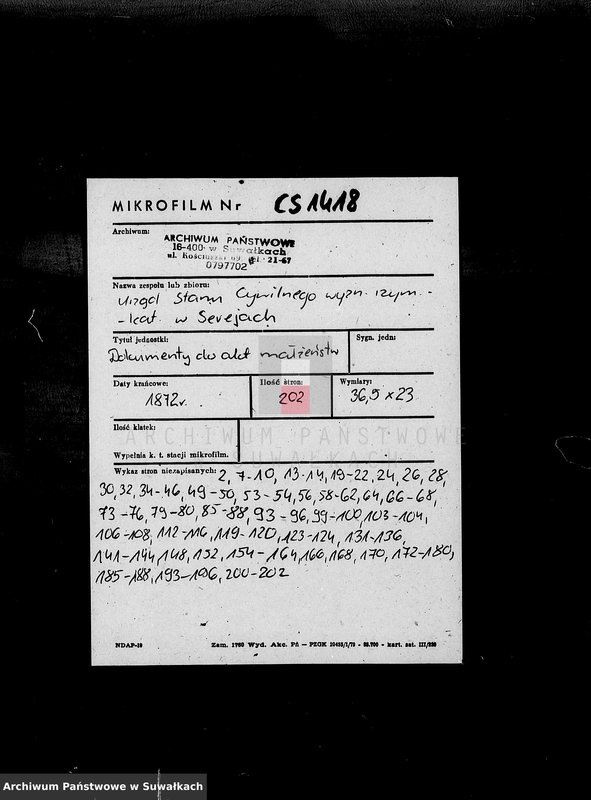 MIKROFILM Nr CS1418
Archiwum:
ARCHIWUM PAŃSTWOWE
16-400 w Suwałkach
ul. Kościuszki 69, tel. 21-67
0797702
Nazwa zespołu lub zbioru:
Urząd Stanu Cywilnego wyzn. rzym.-
-kat. w Serejach
Tytuł jednostki: Sygn. jedn:
Dokumenty do akt małżeństw
Daty krańcowe: Ilość stron: Wymiary:
1872r. 202 36,5 x 23
Ilość klatek:
ARCHIWUM PAŃSTWOWE
W SUWAŁKACH
Wypełnia k. t. stacji mikrofilm.
Wykaz stron niezapisanych: 2, 7-10, 13-14, 19-22, 24, 26, 28,
30, 32, 34-46, 49-50, 53-54, 56, 58-62, 64, 66-68,
73-76, 79-80, 85-88, 93-96, 99-100, 103-104,
106-108, 112-116, 119-120, 123-124, 131-136,
141-144, 148, 152, 154-164, 166, 168, 170, 172-180,
185-188, 193-196, 200-202
NDAP-10 Zam. 1760 Wyd. Akc. PA — PZGK
Archiwum Państwowe w Suwałkach